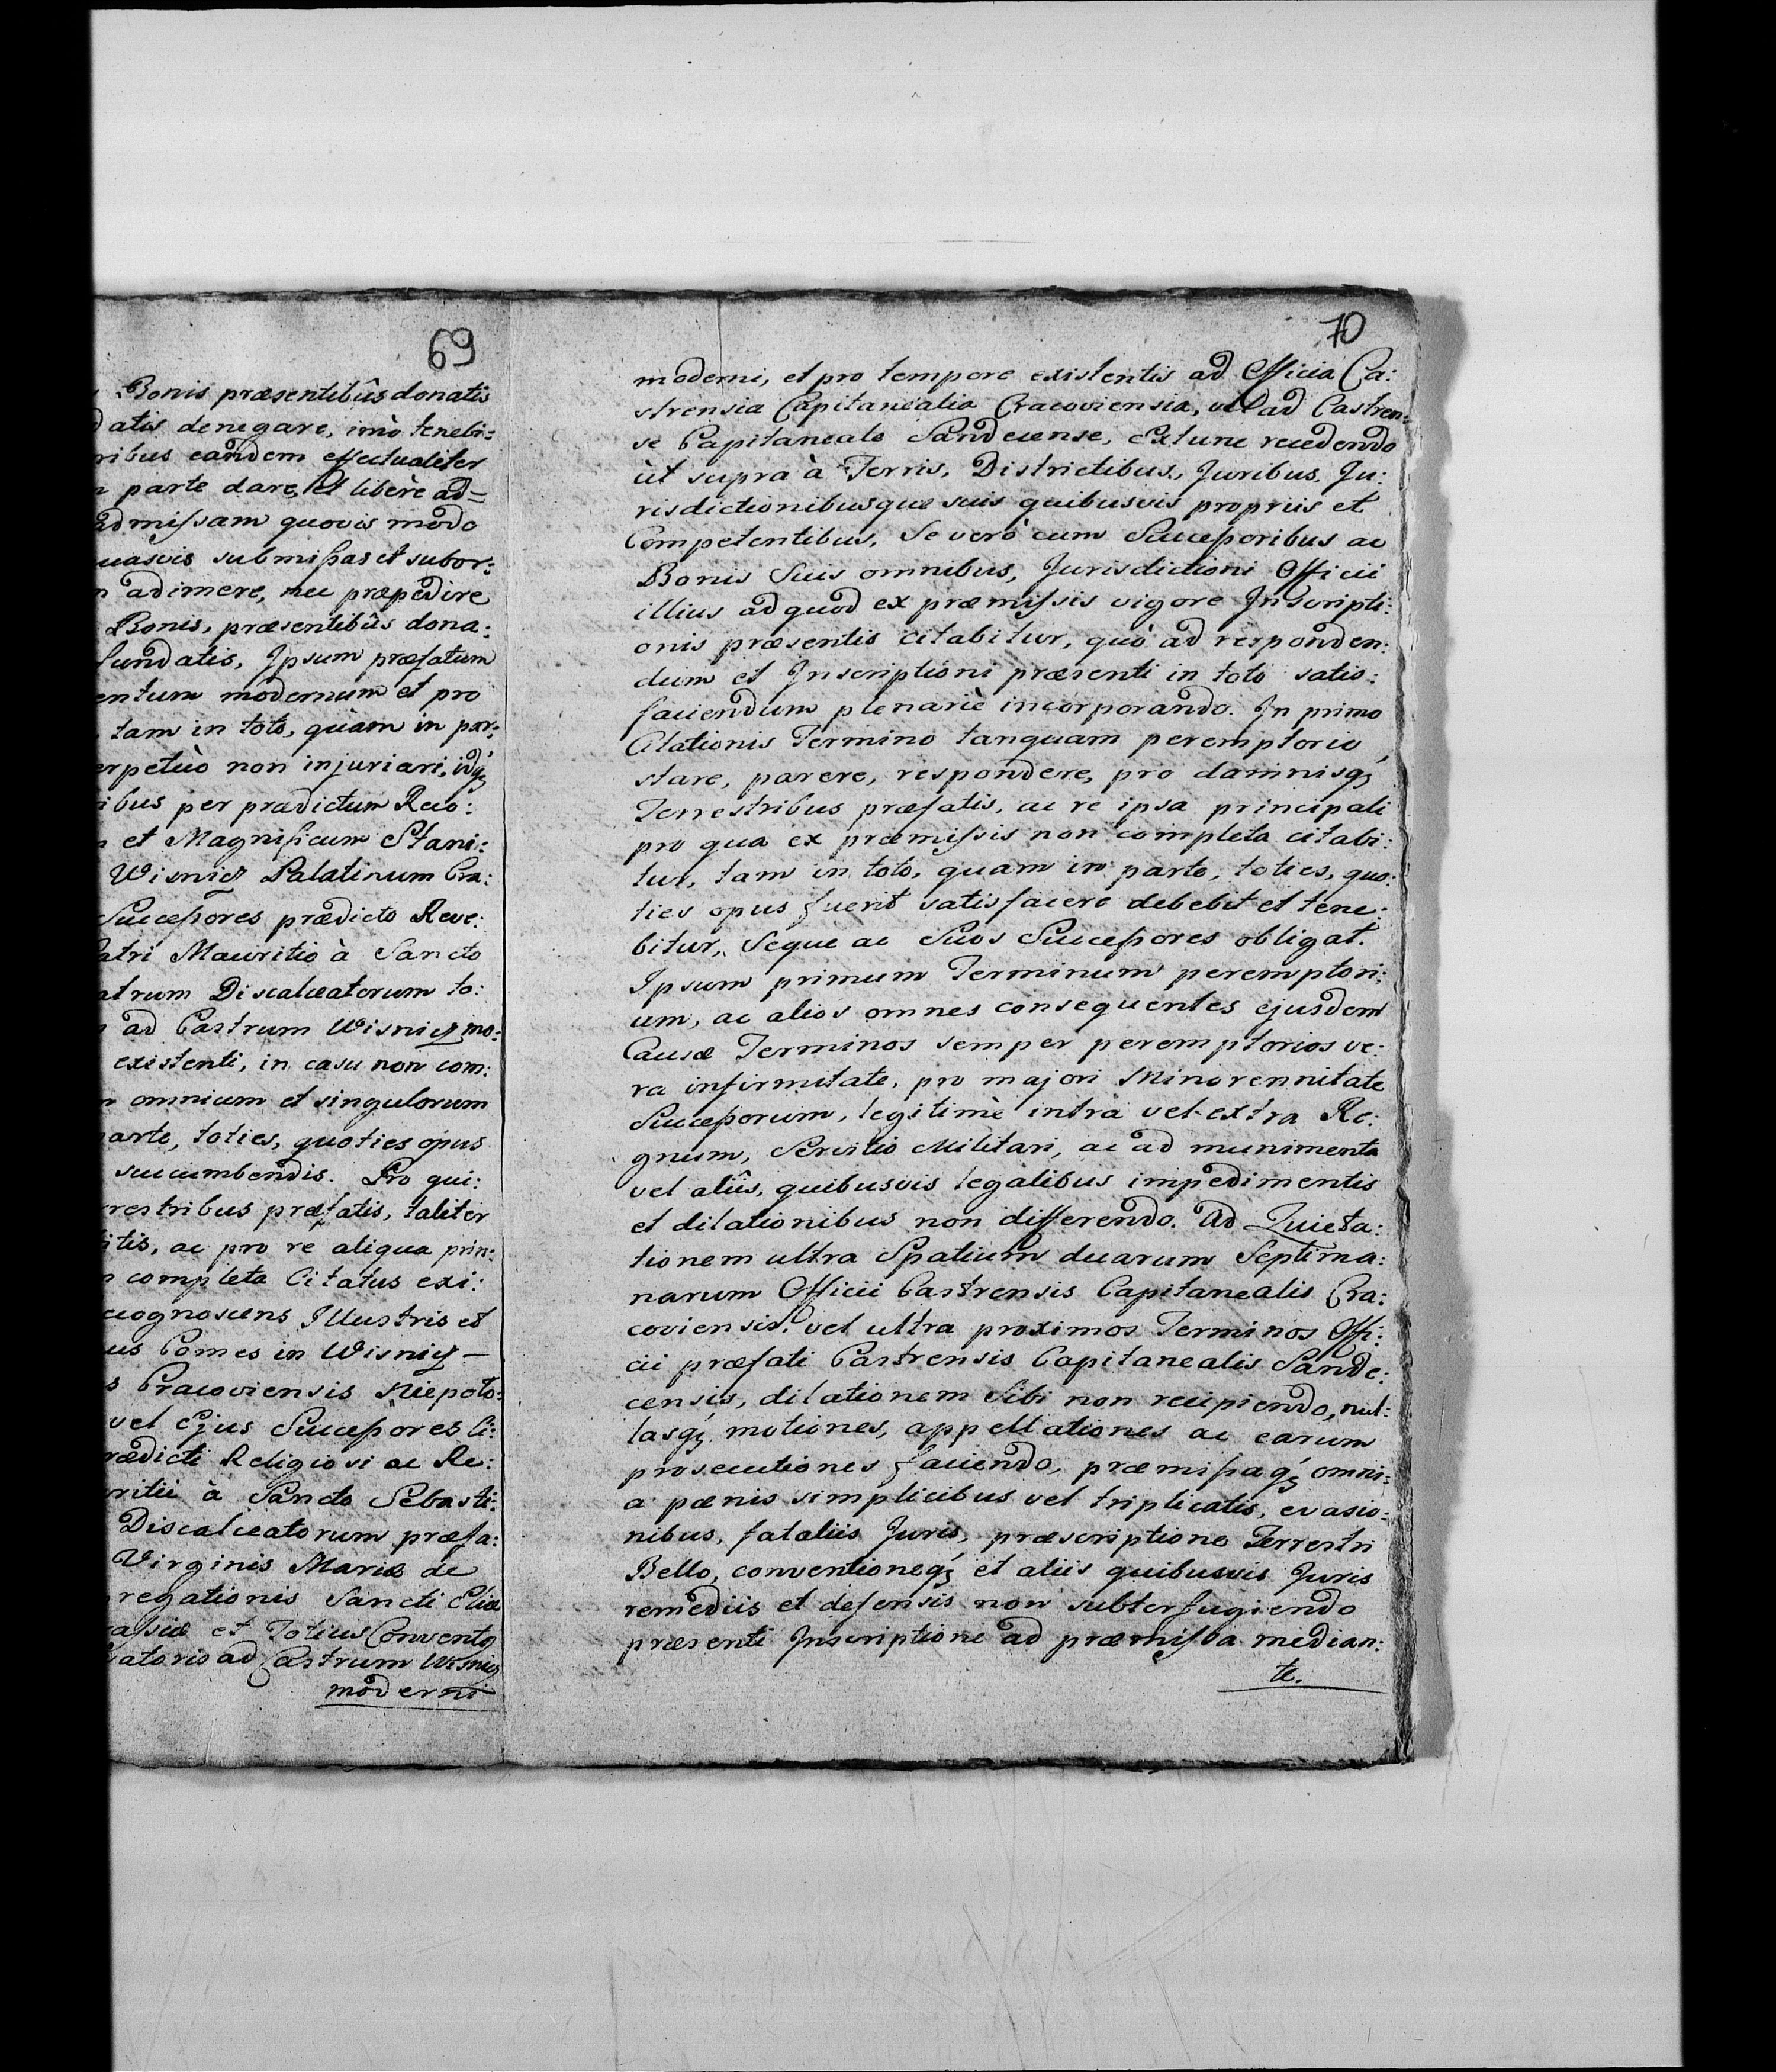 69
Bonis præsentibûs donatis
datis denegare, imò tenebi:
ribus eandem effectualiter
parte dare, et liberè ad=
admissam quovis modo
uasvis submissas et subor:
adimere, nec præpedire
Bonis, præsentibûs dona:
fundatis, Ipsum præfatum
entum modernum et pro
tam in toto, quàm in par:
erpetùo non injuriari, idq́;
ibus per prædictum Reco:
et Magnificum Stani:
Wisnicz Palatinum Cra:
Successores prædicto Reve:
atri Mauritio à Sancto
atrum Discalceatorum to:
ad Castrum Wisnicz mo:
existenti, in casu non com:
omnium et singulorum
arte, toties, quoties opus
succumbendis. Pro qui:
restribus præfatis, taliter
itis, ac pro re aliqua prin:
completa Citatus exi:
cognoscens Illustris et
us Comes in Wisnicz —
s Cracoviensis Niepoło:
vel Ejus Successores Ci:
rædicti Religiosi ac Re:
ritii à Sancto Sebasti:
Discalceatorum præfa:
Virginis Mariæ de
regationis Sancti Eliæ
assiæ et Totius Convents
atorio ad Castrum Wisnicz
moderni
70
moderni, et pro tempore existentis ad Officia Ca:
strensia Capitanealia Cracoviensia, vel ad Castren:
se Capitaneale Sandecense, extunc recedendo
ùt supra à Terris, Districtibus, Juribus, Ju:
risdictionibusque suis quibusvis propriis et
Competentibus, Se verò cum Successoribus ac
Bonis Suis omnibus, Jurisdictioni Officii
illius ad quod ex præmissis vigore Inscripti:
onis præsentis citabitur, quò ad responden:
dum et Inscriptioni præsenti in toto satis:
faciendum plenariè incorporando. In primo
Citationis Termino tanquam peremptorio
stare, parere, respondere, pro damnisq́;
Terrestribus præfatis, ac re ipsa principali
pro qua ex præmissis non completa citabi:
tur, tam in toto, quam in parte, toties, quo:
ties opus fuerit satisfacere debebit et tene:
bitur, Seque ac Suos Successores obligat.
Ipsum primum Terminum peremptori:
um, ac alios omnes consequentes ejusdem
Causæ Terminos semper peremptorios ve:
ra infirmitate, pro majori Minorennitate
Successorum, legitimè intra vel extra Re:
gnum, Servitio Militari, ac ad munimenta
vel aliîs, quibusvis legalibus impedimentis
et dilationibus non differendo. Ad Quieta:
tionem ultra Spatium duarum Septima:
narum Officii Castrensis Capitanealis Cra:
coviensis, vel ultra proximos Terminos Offi:
cii præfati Castrensis Capitanealis Sande:
censis, dilationem Sibi non recipiendo, nul:
lasq́; motiones, appellationes ac earum
prosecutiones faciendo, præmissaq́; omni:
a pœnis simplicibus vel triplicatis, evasio:
nibus, fataliis Juris, præscriptione Terrestri
Bello, conventioneq́; et aliis quibusvis Juris
remediis et defensis non subterfugiendo
præsenti Inscriptione ad præmissa median:
te.